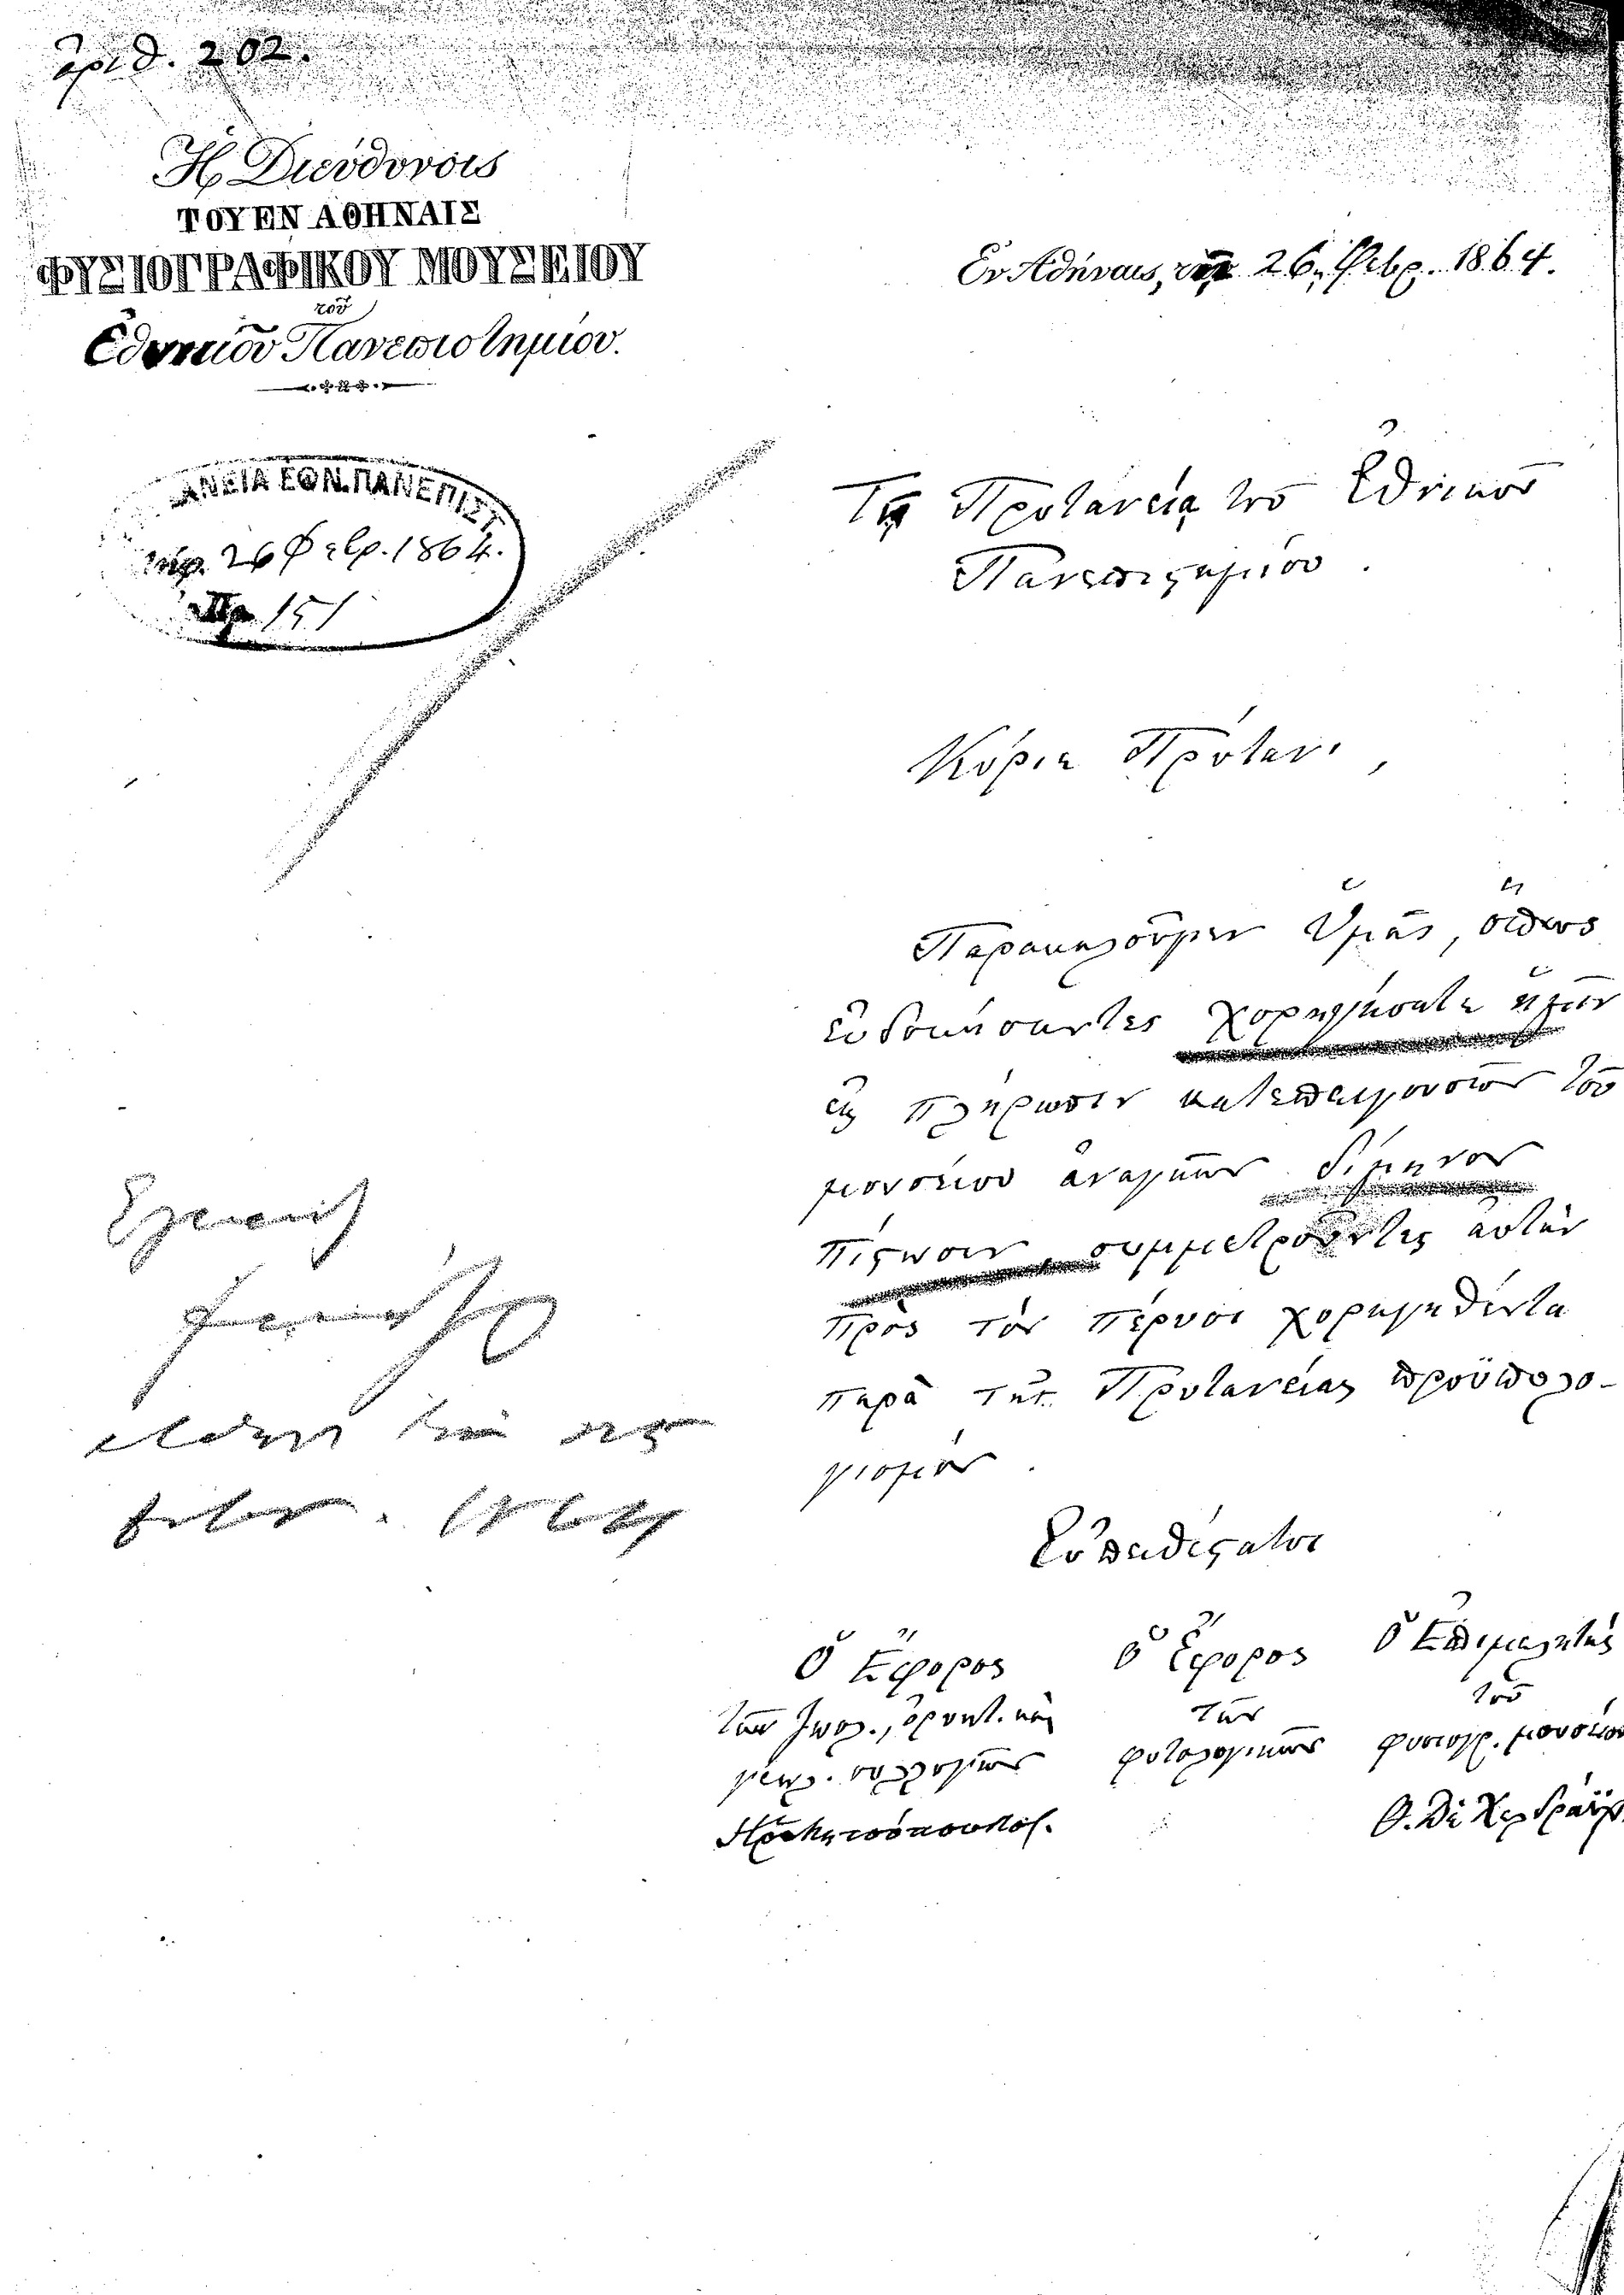 ἀριθ. 202.
Ἡ Διεύθυνσις
ΤΟΥ ΕΝ ΑΘΗΝΑΙΣ
ΦΥΣΙΟΓΡΑΦΙΚΟΥ ΜΟΥΣΕΙΟΥ
τοῦ
Ἐθνικοῦ Πανεπιστημίου.
Ἐν Ἀθήναις, τῇ 26 Φεβρ. 1864.
ΑΝΕΙΑ ΕΘΝ. ΠΑΝΕΠΙΣΤ
26 Φεβρ. 1864.
Πρ. 151
Τῇ Πρυτανείᾳ τοῦ Ἐθνικοῦ
Πανεπιςημίου.
Κύριε Πρύτανι,
Παρακαλοῦμεν Ὑμᾶς, ὅπως
εὐδοκήσαντες χορηγήσατε ἡμῖν
εἰς πλήρωσιν κατεπειγουσῶν τοῦ
μουσείου ἀναγκῶν δίμηνον
πίςωσιν, συμμετροῦντες αὐτὴν
πρὸς τὸν πέρυσι χορηγηθέντα
παρὰ τῆς Πρυτανείας προϋπολο-
γισμόν.
Εὐπειθέςατοι
Ὁ Ἔφορος
τῶν ζωολ., ὀρυκτ. καὶ
γεωλ. συλλογῶν
Ὁ Ἔφορος
τῶν
φυτολογικῶν
Ὁ Ἐπιμελητὴς
τοῦ
φυσιογρ. μουσείου
Θ. Δὲ Χελδράϊχ